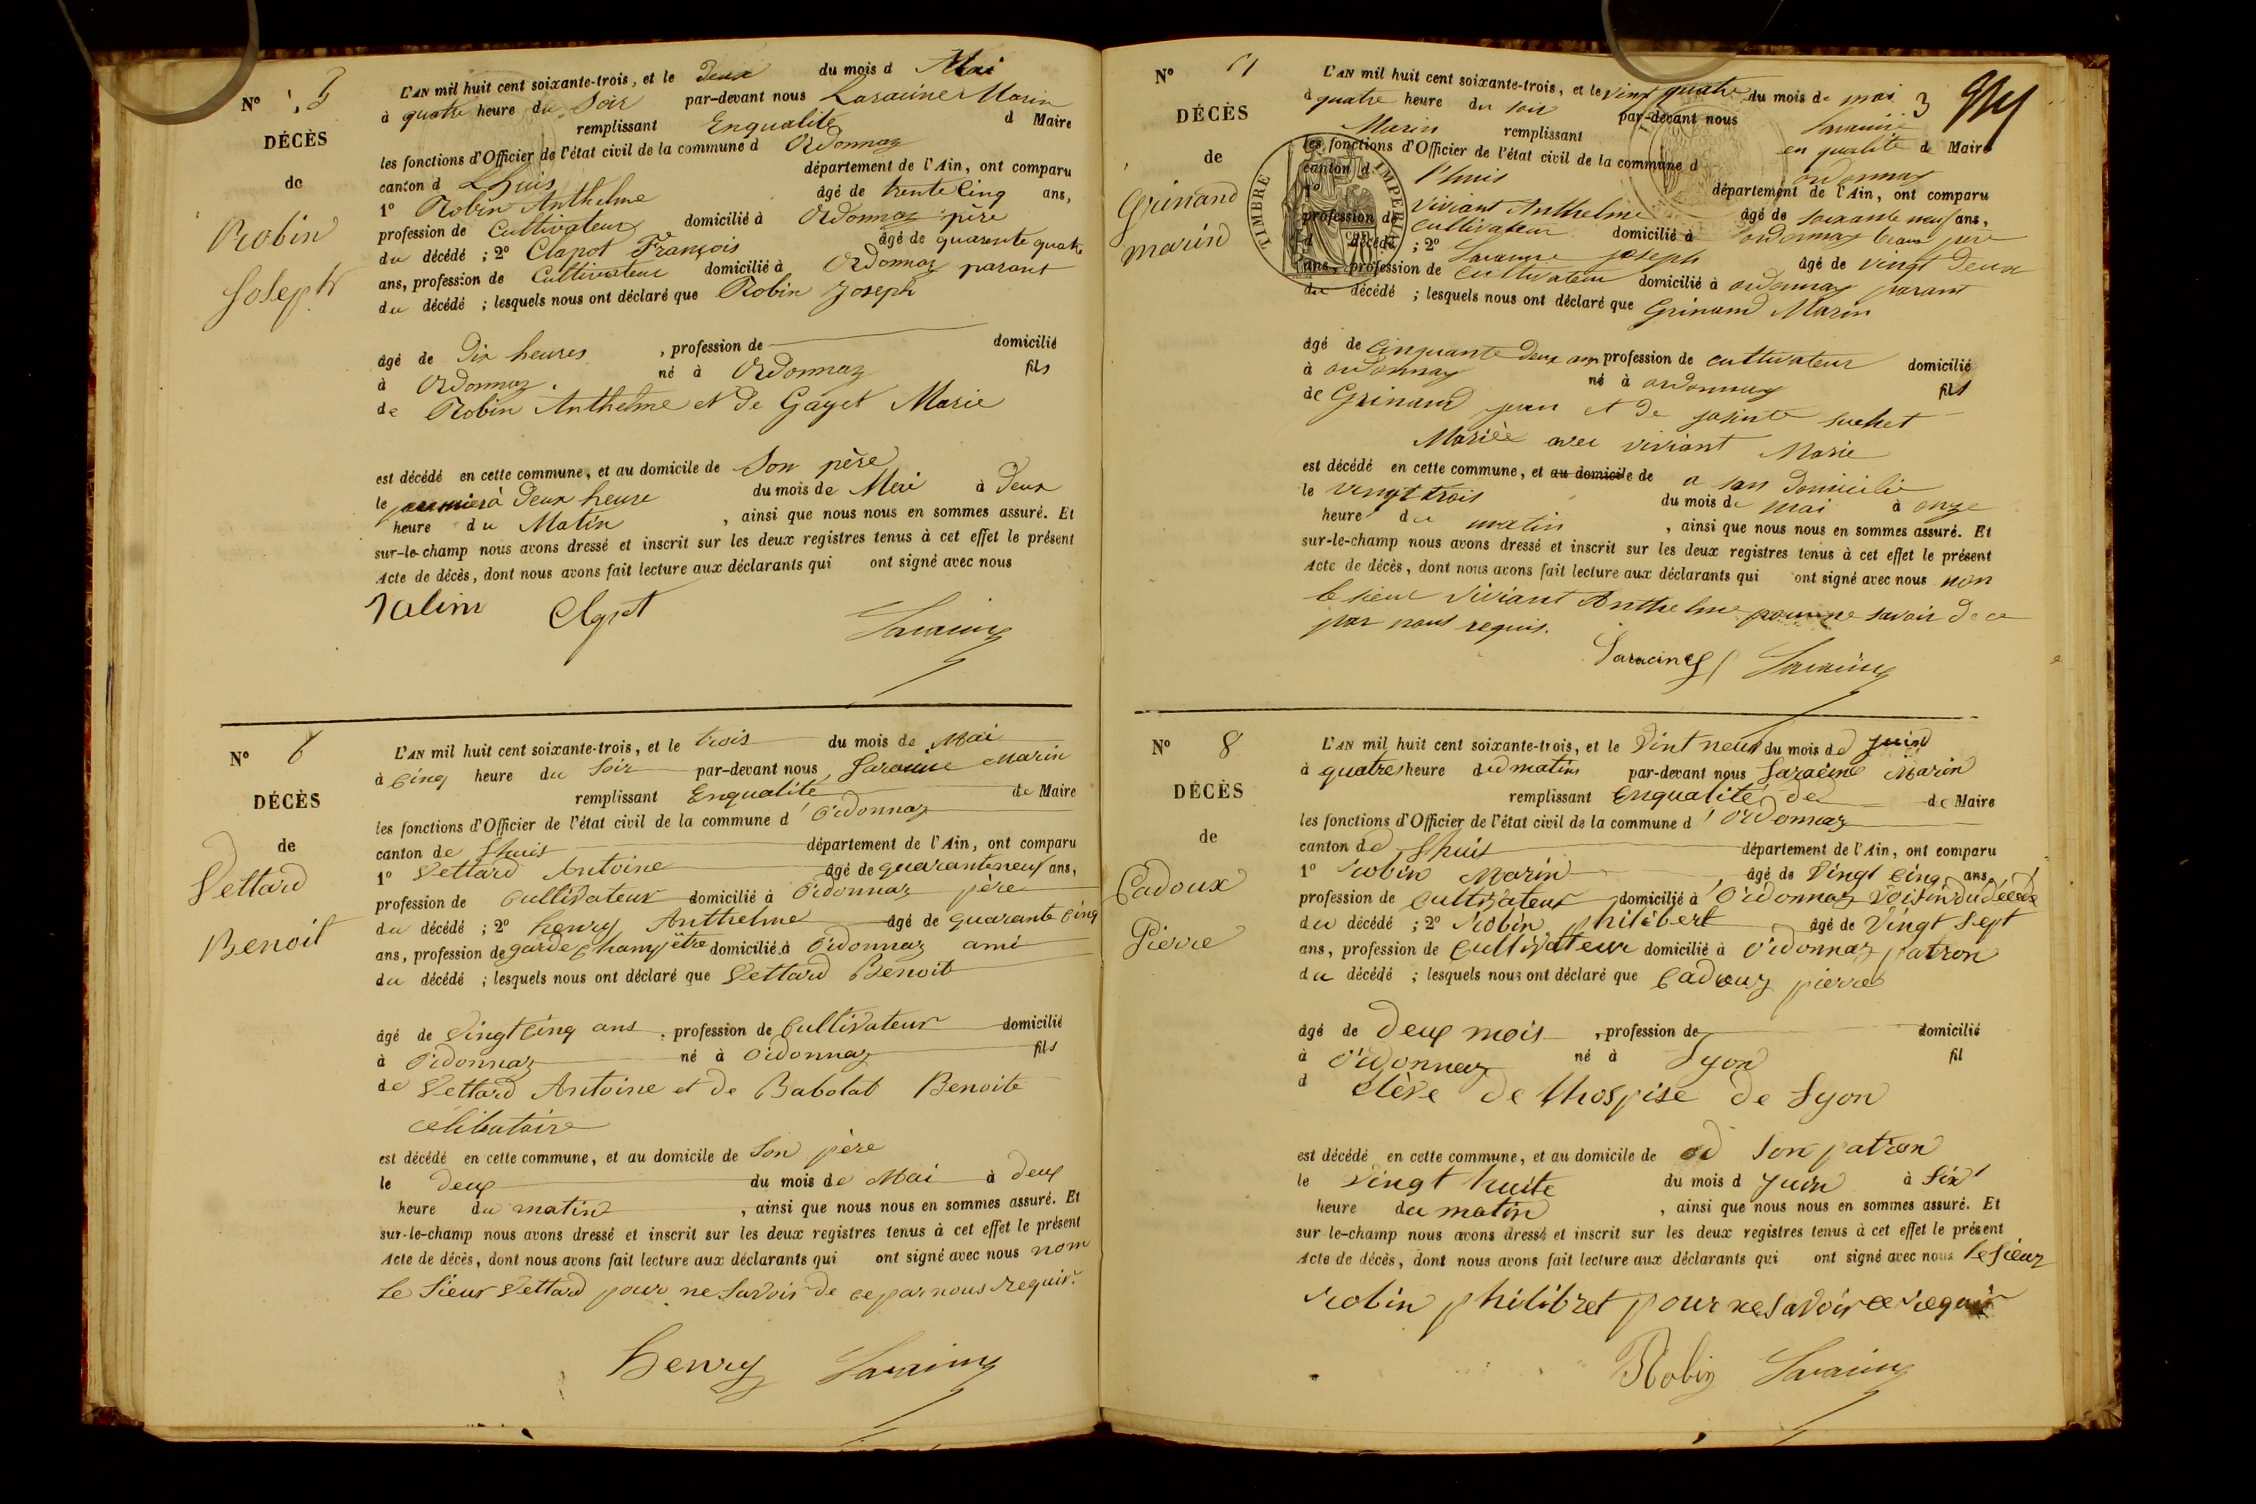 N° 5
DÉCÈS
de
Robin
Joseph
L'AN mil huit cent soixante-trois, et le deux du mois d Mai
à quatre heure du Soir par-devant nous Saraciné Marin
remplissant Enqualité d Maire
les fonctions d'Officier de l'état civil de la commune d Ordonnaz
canton d Lhuis département de l'Ain, ont comparu
1° Robin Anthelme âgé de trente Cinq ans,
profession de Cultivateur domicilié à Ordonnaz père
du décédé ; 2° Clapot François âgé de quarente quatre
ans, profession de Cultivateur domicilié à Ordonnaz parant
du décédé ; lesquels nous ont déclaré que Robin Joseph
âgé de Dix heures , profession de domicilié
à Ordonnaz. né à Ordonnaz fils
de Robin Anthelme et de Gayet Marie
est décédé en cette commune, et au domicile de Son père
le premier à Deux heure du mois de Mai à Deux
heure du Matin , ainsi que nous nous en sommes assuré. Et
sur-le-champ nous avons dressé et inscrit sur les deux registres tenus à cet effet le présent
Acte de décès, dont nous avons fait lecture aux déclarants qui ont signé avec nous
Clapot
N° 6
DÉCÈS
de
Vettard
Benoit
L'AN mil huit cent soixante-trois, et le trois du mois de Mai
à Cinq heure du Soir par-devant nous Saraciné Marin
remplissant Enqualité de Maire
les fonctions d'Officier de l'état civil de la commune d'Ordonnaz
canton de Lhuis département de l'Ain, ont comparu
1° Vettard Antoine âgé de quarante neuf ans,
profession de Cultivateur domicilié à Ordonnaz père
du décédé ; 2° henry Anthelme âgé de quarante Cinq
ans, profession de garde Champêtre domicilié à Ordonnaz ami
du décédé ; lesquels nous ont déclaré que Vettard Benoit
âgé de Vingt Cinq ans , profession de Cultivateur domicilié
à Ordonnaz né à Ordonnaz fils
de Vettard Antoine et de Babolat Benoite
célibataire
est décédé en cette commune, et au domicile de Son père
le deux du mois de Mai à deux
heure du matin , ainsi que nous nous en sommes assuré. Et
sur-le-champ nous avons dressé et inscrit sur les deux registres tenus à cet effet le présent
Acte de décès, dont nous avons fait lecture aux déclarants qui ont signé avec nous nom
Le Sieur Vettard pour ne Savoir de ce par nous requis.
henry Saraciné
N° 7
DÉCÈS
de
Grinand
marin
TIMBRE IMPERIAL
3
L'AN mil huit cent soixante-trois, et le vint quatre du mois de mai
à quatre heure du soir par-devant nous Saraciné
Marin remplissant en qualité de Maire
les fonctions d'Officier de l'état civil de la commune d ordonnaz
canton d l'huis département de l'Ain, ont comparu
1° Viviant Anthelme âgé de soixante neuf ans,
profession de Cultivateur domicilié à ordonnaz beau père
d décédé ; 2° Saraciné joseph âgé de vingt Deux
ans, profession de Cultivateur domicilié à ordonnaz parant
du décédé ; lesquels nous ont déclaré que Grinand Marin
âgé de Cinquante Deux ans profession de cultivateur domicilié
à ordonnaz né à ordonnaz fils
de Grinand jean et de josinte suchet
Mariée avec viviant Marie
est décédé en cette commune, et au domicile de a son domicilie
le vingt trois du mois de mai à onze
heure du matin , ainsi que nous nous en sommes assuré. Et
sur-le-champ nous avons dressé et inscrit sur les deux registres tenus à cet effet le présent
Acte de décès, dont nous avons fait lecture aux déclarants qui ont signé avec nous non
le sieur Viviant Anthelme pour ne savoir de ce
par nous requis.
Saraciné Saraciné
N° 8
DÉCÈS
de
Cadoux
Pierre
L'AN mil huit cent soixante-trois, et le Vint neuf du mois de juin
à quatre heure du matin par-devant nous Saraciné Marin
remplissant Enqualité de de Maire
les fonctions d'Officier de l'état civil de la commune d'Ordonnaz
canton de Lhuis département de l'Ain, ont comparu
1° robin Marin âgé de Vingt Cinq ans,
profession de Cultivateur domicilié à Ordonnaz Voisin du décédé
du décédé ; 2° robin philibert âgé de Vingt Sept
ans, profession de Cultivateur domicilié à Ordonnaz patron
du décédé ; lesquels nous ont déclaré que Cadoux pierre
âgé de deux mois , profession de domicilié
à Ordonnaz né à Lyon fil
d élève de lhospise de Lyon
est décédé en cette commune, et au domicile de Son patron
le Vingt huite du mois d Juin à Six
heure du matin , ainsi que nous nous en sommes assuré. Et
sur-le-champ nous avons dressé et inscrit sur les deux registres tenus à cet effet le présent
Acte de décès, dont nous avons fait lecture aux déclarants qui ont signé avec nous le Sieur
robin philibret pour ne Savoir ce requis
Robin Saraciné